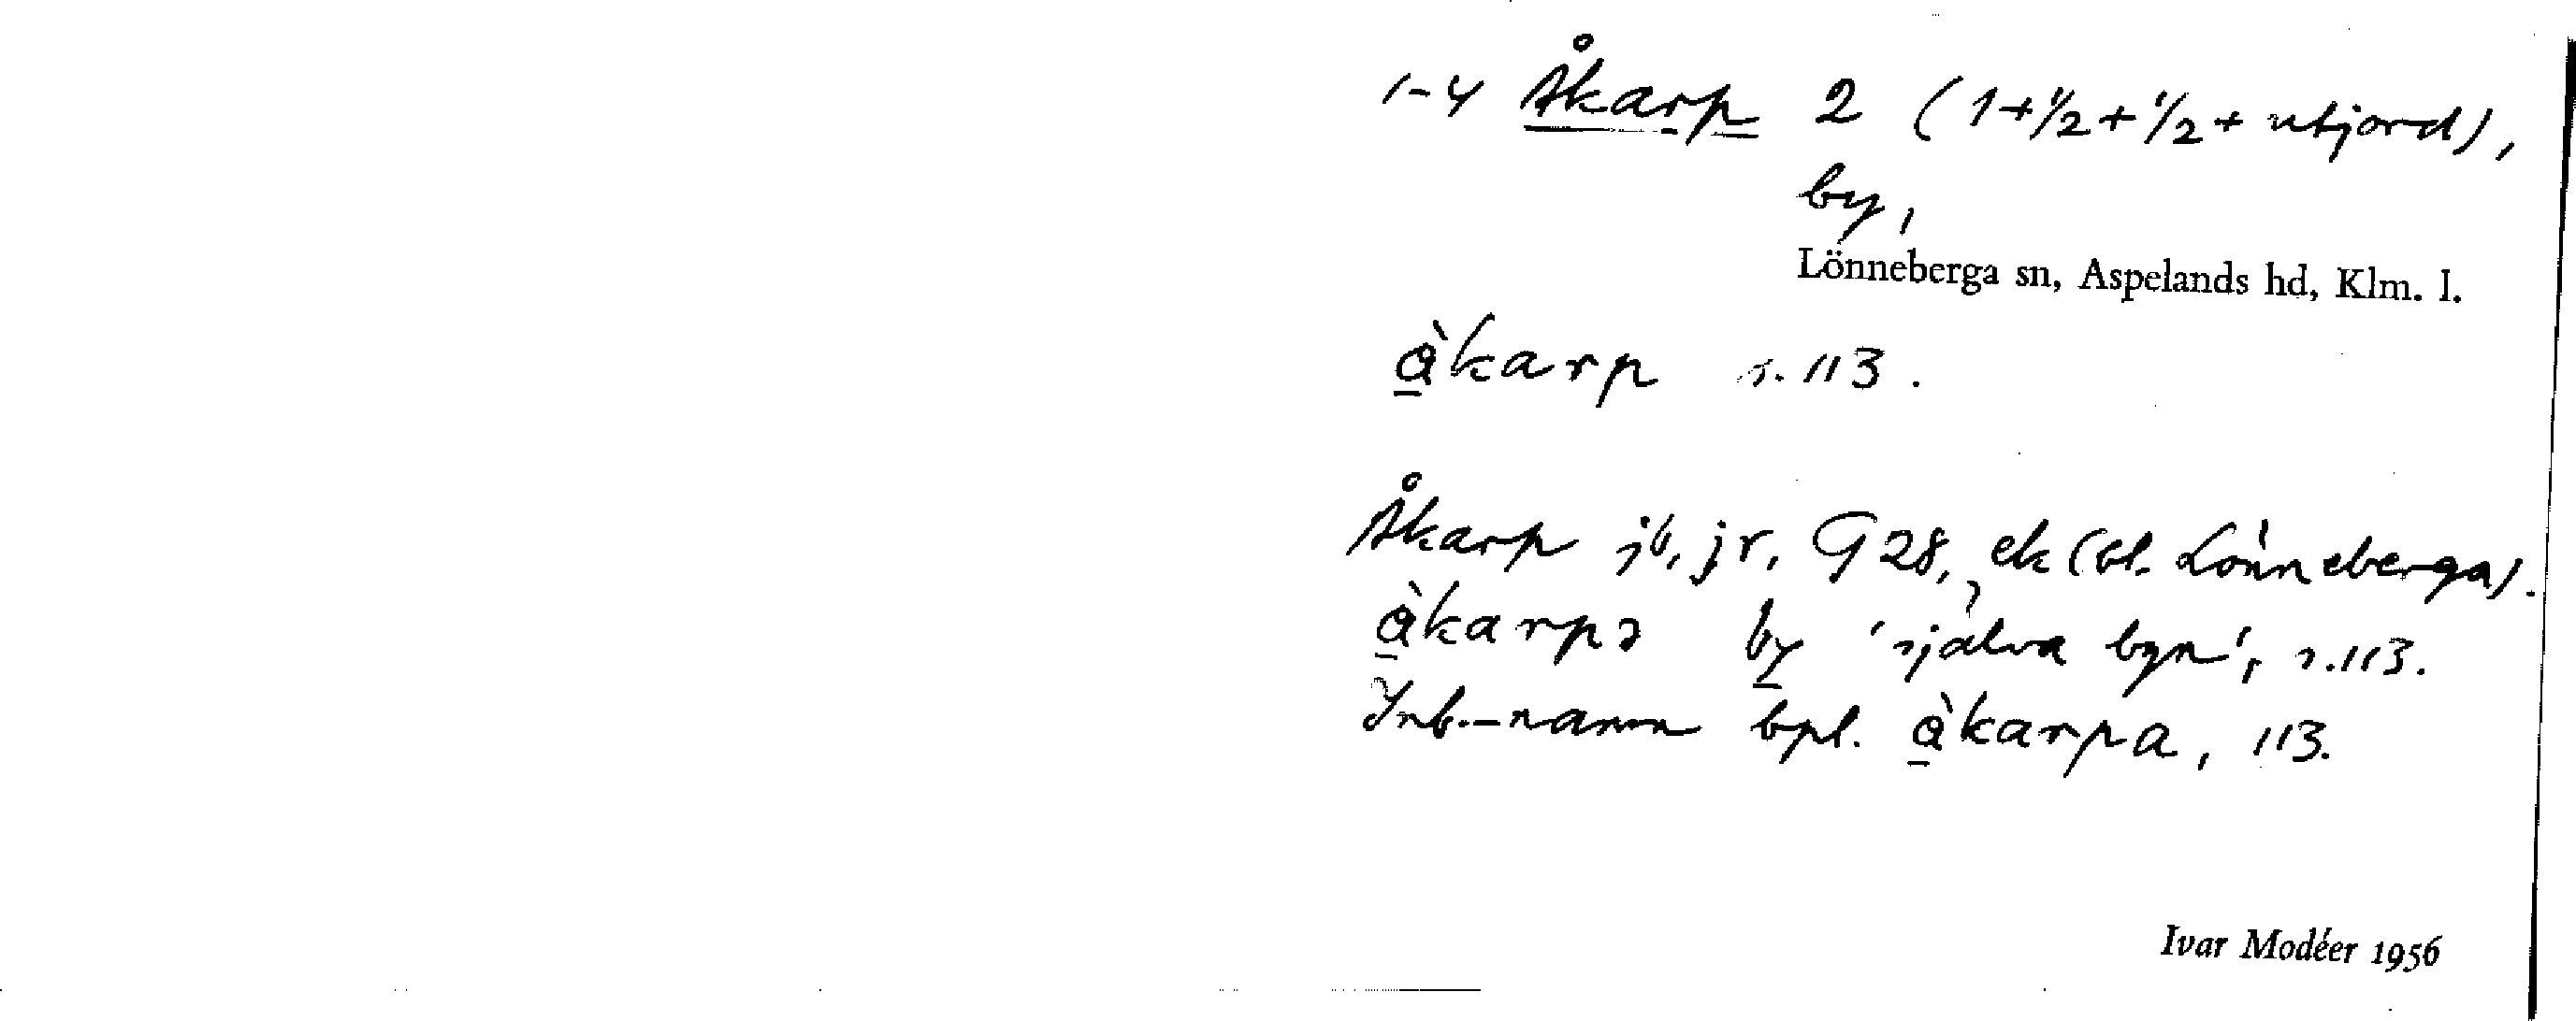 1-4 Åkarp 2 (1+1/2+1/2+utjord),
by,
Lönneberga sn, Aspelands hd, Klm. l.
å̀karp s. 113.
Åkarp jb, jr, G 28, ek (bl. Lönneberga).
å̀karpə by 'själva byn', s. 113.
Inb.-namn bpl. å̀karpa, 113.
Ivar Modéer 1956